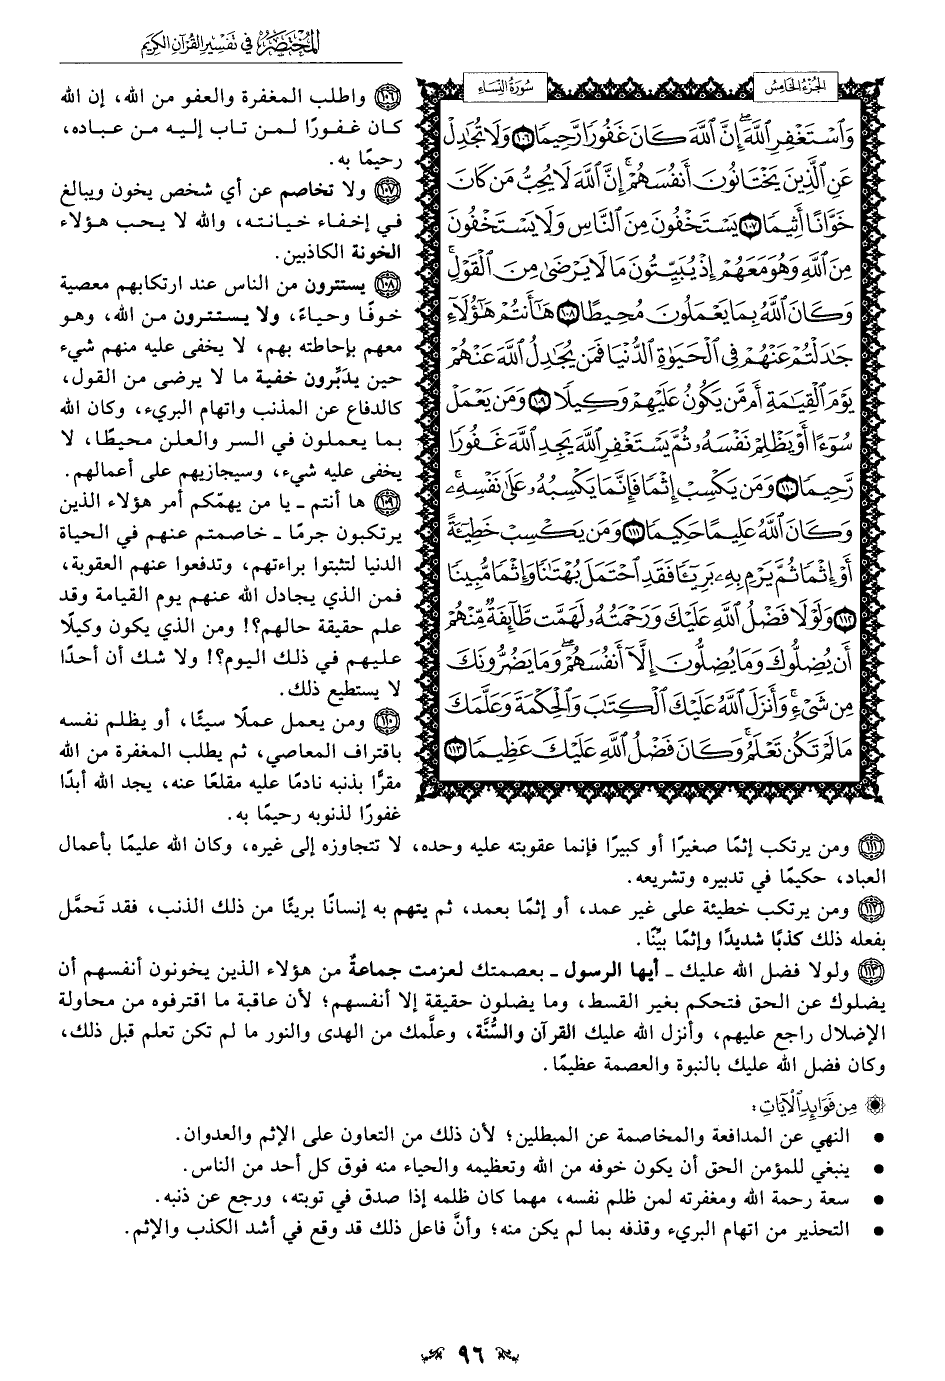 المختصر في تفسير القرآن الكريم
الجزء الخامس
سورة النساء
وَٱسۡتَغۡفِرِ ٱللَّهَۖ إِنَّ ٱللَّهَ كَانَ غَفُورٗا رَّحِيمٗا ١٠٦ وَلَا تُجَٰدِلۡ
عَنِ ٱلَّذِينَ يَخۡتَانُونَ أَنفُسَهُمۡۚ إِنَّ ٱللَّهَ لَا يُحِبُّ مَن كَانَ
خَوَّانًا أَثِيمٗا ١٠٧ يَسۡتَخۡفُونَ مِنَ ٱلنَّاسِ وَلَا يَسۡتَخۡفُونَ
مِنَ ٱللَّهِ وَهُوَ مَعَهُمۡ إِذۡ يُبَيِّتُونَ مَا لَا يَرۡضَىٰ مِنَ ٱلۡقَوۡلِۚ
وَكَانَ ٱللَّهُ بِمَا يَعۡمَلُونَ مُحِيطًا ١٠٨ هَٰٓأَنتُمۡ هَٰٓؤُلَآءِ
جَٰدَلۡتُمۡ عَنۡهُمۡ فِي ٱلۡحَيَوٰةِ ٱلدُّنۡيَا فَمَن يُجَٰدِلُ ٱللَّهَ عَنۡهُمۡ
يَوۡمَ ٱلۡقِيَٰمَةِ أَم مَّن يَكُونُ عَلَيۡهِمۡ وَكِيلٗا ١٠٩ وَمَن يَعۡمَلۡ
سُوٓءًا أَوۡ يَظۡلِمۡ نَفۡسَهُۥ ثُمَّ يَسۡتَغۡفِرِ ٱللَّهَ يَجِدِ ٱللَّهَ غَفُورٗا
رَّحِيمٗا ١١٠ وَمَن يَكۡسِبۡ إِثۡمٗا فَإِنَّمَا يَكۡسِبُهُۥ عَلَىٰ نَفۡسِهِۦۚ
وَكَانَ ٱللَّهُ عَلِيمًا حَكِيمٗا ١١١ وَمَن يَكۡسِبۡ خَطِيٓـَٔةً
أَوۡ إِثۡمٗا ثُمَّ يَرۡمِ بِهِۦ بَرِيٓـٔٗا فَقَدِ ٱحۡتَمَلَ بُهۡتَٰنٗا وَإِثۡمٗا مُّبِينٗا
١١٢ وَلَوۡلَا فَضۡلُ ٱللَّهِ عَلَيۡكَ وَرَحۡمَتُهُۥ لَهَمَّت طَّآئِفَةٞ مِّنۡهُمۡ
أَن يُضِلُّوكَ وَمَا يُضِلُّونَ إِلَّآ أَنفُسَهُمۡۖ وَمَا يَضُرُّونَكَ
مِن شَيۡءٖۚ وَأَنزَلَ ٱللَّهُ عَلَيۡكَ ٱلۡكِتَٰبَ وَٱلۡحِكۡمَةَ وَعَلَّمَكَ
مَا لَمۡ تَكُن تَعۡلَمُۚ وَكَانَ فَضۡلُ ٱللَّهِ عَلَيۡكَ عَظِيمٗا ١١٣
١٠٦ واطلب المغفرة والعفو من الله، إن الله
كان غفورًا لمن تاب إليه من عباده،
رحيمًا به.
١٠٧ ولا تخاصم عن أي شخص يخون ويبالغ
في إخفاء خيانته، والله لا يحب هؤلاء
الخونة الكاذبين.
١٠٨ يستترون من الناس عند ارتكابهم معصية
خوفًا وحياءً، ولا يستترون من الله، وهو
معهم بإحاطته بهم، لا يخفى عليه منهم شيء
حين يدَبِّرون خفية ما لا يرضى من القول،
كالدفاع عن المذنب واتهام البريء، وكان الله
بما يعملون في السر والعلن محيطًا، لا
يخفى عليه شيء، وسيجازيهم على أعمالهم.
١٠٩ ها أنتم ـ يا من يهمّكم أمر هؤلاء الذين
يرتكبون جرمًا ـ خاصمتم عنهم في الحياة
الدنيا لتثبتوا براءتهم، وتدفعوا عنهم العقوبة،
فمن الذي يجادل الله عنهم يوم القيامة وقد
علم حقيقة حالهم؟! ومن الذي يكون وكيلًا
عليهم في ذلك اليوم؟! ولا شك أن أحدًا
لا يستطيع ذلك.
١١٠ ومن يعمل عملًا سيئًا، أو يظلم نفسه
باقتراف المعاصي، ثم يطلب المغفرة من الله
مقرًّا بذنبه نادمًا عليه مقلعًا عنه، يجد الله أبدًا
غفورًا لذنوبه رحيمًا به.
١١١ ومن يرتكب إثمًا صغيرًا أو كبيرًا فإنما عقوبته عليه وحده، لا تتجاوزه إلى غيره، وكان الله عليمًا بأعمال
العباد، حكيمًا في تدبيره وتشريعه.
١١٢ ومن يرتكب خطيئة على غير عمد، أو إثمًا بعمد، ثم يتهم به إنسانًا بريئًا من ذلك الذنب، فقد تَحمَّل
بفعله ذلك كذبًا شديدًا وإثمًا بيِّنًا.
١١٣ ولولا فضل الله عليك ـ أيها الرسول ـ بعصمتك لعزمت جماعةٌ من هؤلاء الذين يخونون أنفسهم أن
يضلوك عن الحق فتحكم بغير القسط، وما يضلون حقيقة إلا أنفسهم؛ لأن عاقبة ما اقترفوه من محاولة
الإضلال راجع عليهم، وأنزل الله عليك القرآن والسُّنَّة، وعلَّمك من الهدى والنور ما لم تكن تعلم قبل ذلك،
وكان فضل الله عليك بالنبوة والعصمة عظيمًا.
من فوائد الآيات:
● النهي عن المدافعة والمخاصمة عن المبطلين؛ لأن ذلك من التعاون على الإثم والعدوان.
● ينبغي للمؤمن الحق أن يكون خوفه من الله وتعظيمه والحياء منه فوق كل أحد من الناس.
● سعة رحمة الله ومغفرته لمن ظلم نفسه، مهما كان ظلمه إذا صدق في توبته، ورجع عن ذنبه.
● التحذير من اتهام البريء وقذفه بما لم يكن منه؛ وأنَّ فاعل ذلك قد وقع في أشد الكذب والإثم.
٩٦